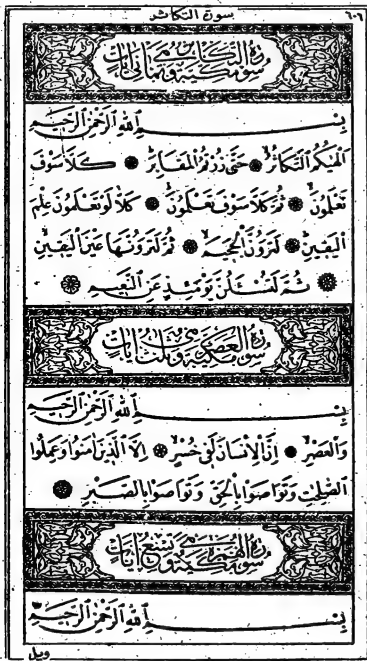 ٦٠٦ سورة التكاثر
سورة التكاثر مكية وهى ثمانى ايات
بِسْــــمِ ٱللّٰهِ ٱلرَّحْمٰنِ ٱلرَّحِيمِ
اَلْهٰيكُمُ ٱلتَّكَاثُرُۙ ۝ حَتّٰى زُرْتُمُ ٱلْمَقَابِرَۜ ۝ كَلَّا سَوْفَ
تَعْلَمُونَۙ ۝ ثُمَّ كَلَّا سَوْفَ تَعْلَمُونَۜ ۝ كَلَّا لَوْ تَعْلَمُونَ عِلْمَ
ٱلْيَقِينِۜ ۝ لَتَرَوُنَّ ٱلْجَحِيمَۙ ۝ ثُمَّ لَتَرَوُنَّهَا عَيْنَ ٱلْيَقِينِۙ
۝ ثُمَّ لَتُسْـَٔلُنَّ يَوْمَئِذٍ عَنِ ٱلنَّعِيمِ ۝
سورة العصر مكية وهى ثلث ايات
بِسْــــمِ ٱللّٰهِ ٱلرَّحْمٰنِ ٱلرَّحِيمِ
وَٱلْعَصْرِۙ ۝ اِنَّ ٱلْاِنْسَانَ لَفِى خُسْرٍۙ ۝ اِلَّا ٱلَّذِينَ اٰمَنُوا وَعَمِلُوا
ٱلصَّالِحَاتِ وَتَوَاصَوْا بِٱلْحَقِّ وَتَوَاصَوْا بِٱلصَّبْرِ ۝
سورة الهمزة مكية وهى تسع ايات
بِسْــــمِ ٱللّٰهِ ٱلرَّحْمٰنِ ٱلرَّحِيمِ
ويل